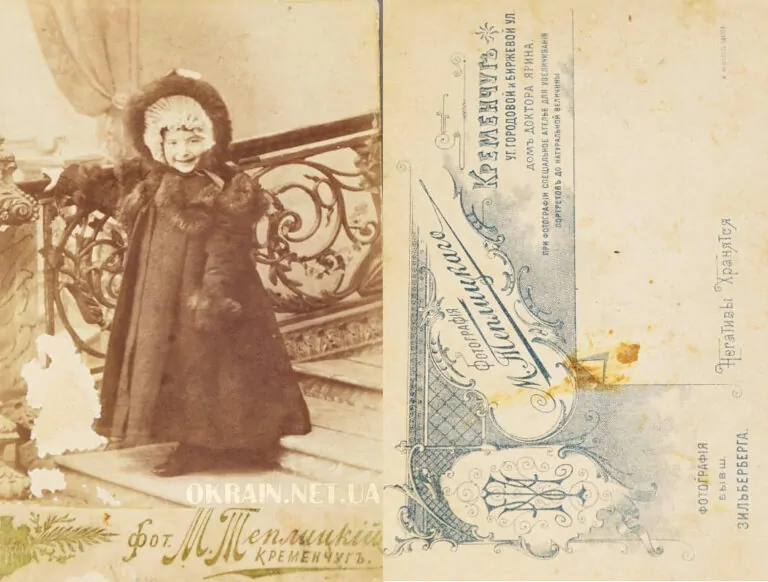 OKRAIN.NET.UA
Фот. М. Теплицкій
КРЕМЕНЧУГЪ.
ФОТОГРАФІЯ
М. Теплицкаго
КРЕМЕНЧУГЪ
УГ. ГОРОДОВОЙ и БИРЖЕВОЙ УЛ.
ДОМЪ ДОКТОРА ЯРИНА.
ПРИ ФОТОГРАФІИ СПЕЦІАЛЬНОЕ АТЕЛЬЕ ДЛЯ УВЕЛИЧИВАНІЯ
ПОРТРЕТОВЪ ДО НАТУРАЛЬНОЙ ВЕЛИЧИНЫ
Негативы Хранятся
ФОТОГРАФІЯ
БЫВШ.
ЗИЛЬБЕРБЕРГА.